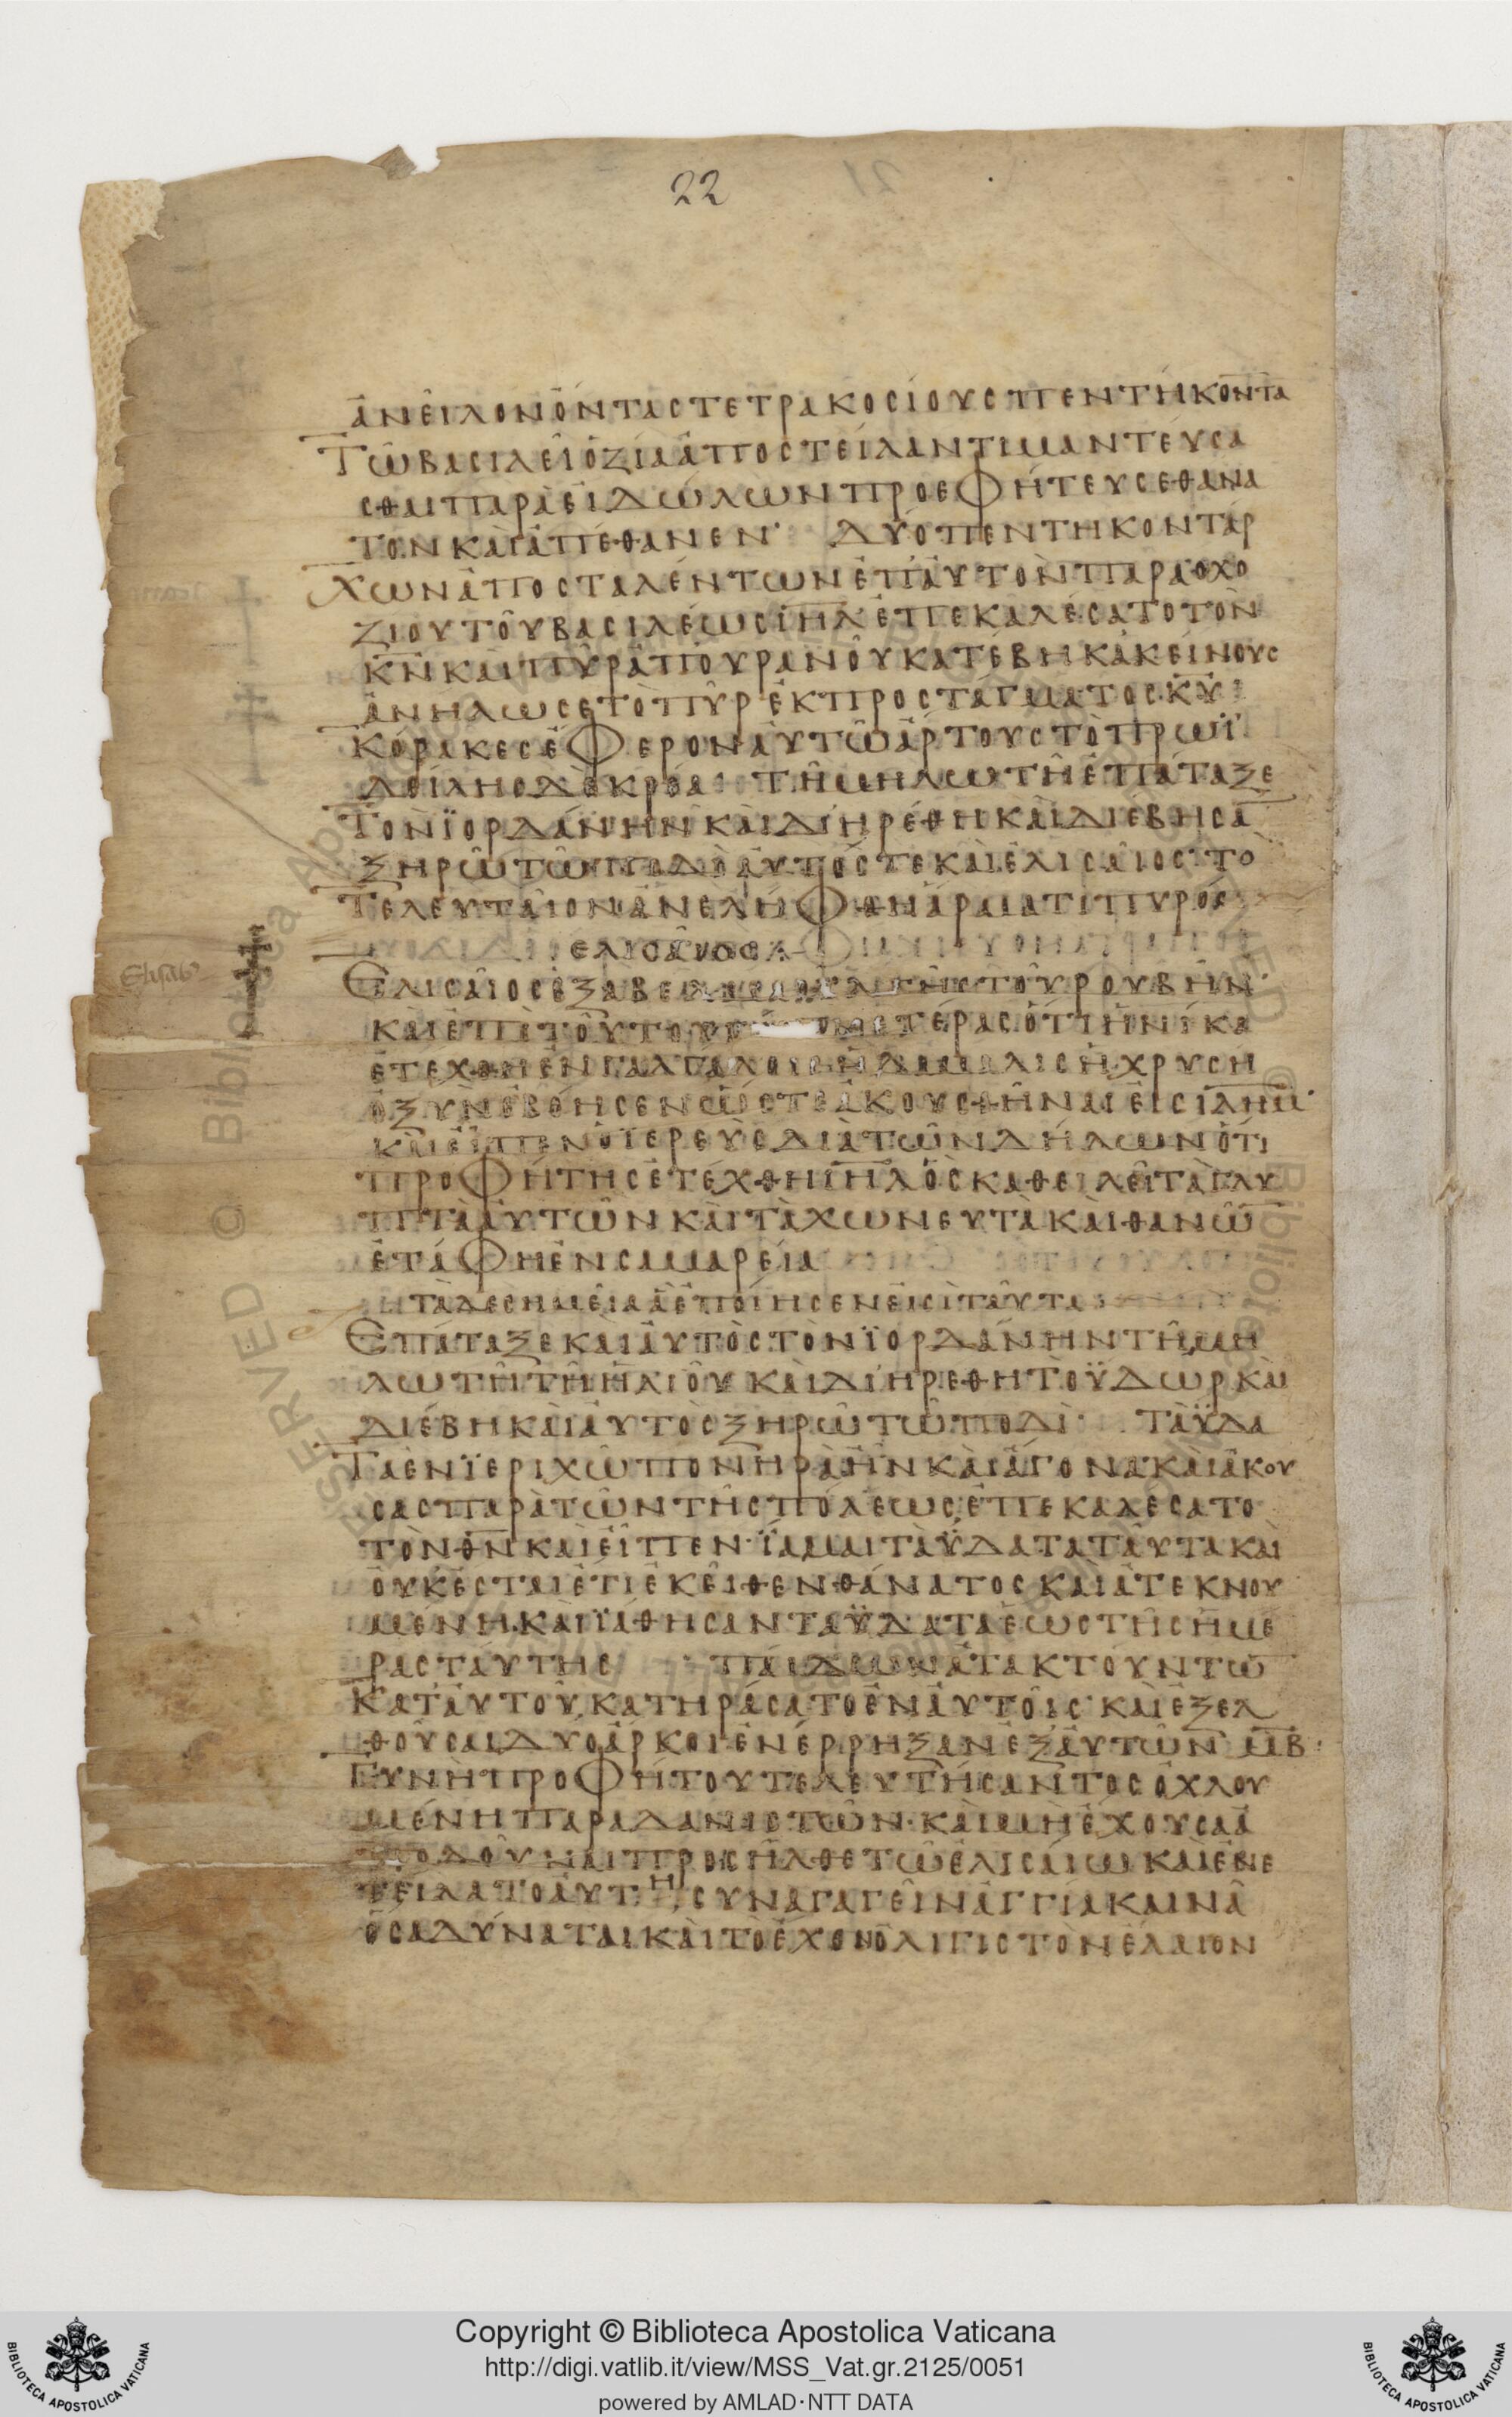 22
ἀνεῖλον ὄντας τετρακοσίους πεντήκοντα
Τῶ βασιλεῖ ὀζία ἀποστείλαντι μαντεύσα
σθαι παρὰ εἰδώλων προεφήτευσε θάνα
τον καὶ ἀπέθανεν· Δύο πεντηκοντάρ
χων ἀποσταλέντων ἐπ' αὐτὸν παρὰ ὀχο
ζίου τοῦ βασιλέως ιηλ ἐπεκαλέσατο τὸν
κν καὶ πῦρ ἀπ' οὐρανοῦ κατέβη κἀκείνους
ἀνήλωσε τὸ πῦρ ἐκ προστάγματος κυ
Κόρακες ἔφερον αὐτῶ ἄρτους τὸ πρωϊ
δείλης δὲ κρέα Τῆ μηλωτῆ ἐπάταξε
Τὸν ϊορδάνην καὶ διηρέθη καὶ διέβησα
ξηρῶ τῶ ποδὶ αὐτός τε καὶ ἐλισαῖος· τὸ
Τελευταῖον ἀνελήφθη ἅρματι πυρός
ελισαῖος
Ελισαῖος ἐξ ἀβελ τοῦ ρουβήν·
καὶ ἐπὶ τούτου τέρας ὅτι ἡνίκα
ἐτέχθη ἐν γαλγάλοις ἡ δάμαλις ἡ χρυσῆ
ὀξὺν ἐβόησεν ὥστε ἀκουσθῆναι εἰς ιλημ·
καὶ εἶπεν ὁ ἱερεὺς διὰ τῶν δήλων ὅτι
προφήτης ἐτέχθη ιηλ ὃς καθειλεῖ τὰ γλυ
πτὰ αὐτῶν καὶ τὰ χωνευτὰ καὶ θανὼ
ἐτάφη ἐν σαμαρεία
τὰ δὲ σημεῖα ἃ ἐποίησεν εἰσὶ ταῦτα
Επάταξε καὶ αὐτὸς τὸν ϊορδάνην τῆ μη
λωτῆ τῆ ηλιοῦ καὶ διηρέθη τὸ ϋδωρ καὶ
διέβη καὶ αὐτὸς ξηρῶ τῶ ποδὶ· Τὰ ϋδα
Τα ἐν ϊεριχῶ πονηρὰ ἦν καὶ ἄγονα· καὶ ἀκού
σας παρὰ τῶν τῆς πόλεως ἐπεκαλέσατο
τὸν θν καὶ εἶπεν· ϊαμαι τὰ ϋδατα ταῦτα καὶ
οὐκ ἔσται ἔτι ἐκεῖθεν θάνατος καὶ ἀτεκνου
μένη· καὶ ϊάθησαν τὰ ϋδατα ἕως τῆς ἡμέ
ρας ταύτης παίδων ἀτακτούντω
Κατ' αὐτοῦ, κατηράσατο ἐν αὐτοῖς· καὶ ἐξελ
θοῦσαι δύο ἄρκοι ἐνέρρηξαν ἐξ αὐτῶν μβ·
Γυνὴ προφήτου τελευτήσαντος ὀχλου
μένη παρὰ δανιστῶν· καὶ μὴ ἔχουσα ἀ
ποδοῦναι προσῆλθε τῶ ἐλισαίω καὶ ἐνε
τείλατο αὐτῆ, συναγαγεῖν ἀγγία καινὰ
ὅσα δύναται καὶ τὸ ἔχον ὀλίγιστον ἔλαιον
Copyright © Biblioteca Apostolica Vaticana
http://digi.vatlib.it/view/MSS_Vat.gr.2125/0051
powered by AMLAD·NTT DATA
BIBLIOTECA APOSTOLICA VATICANA
BIBLIOTECA APOSTOLICA VATICANA